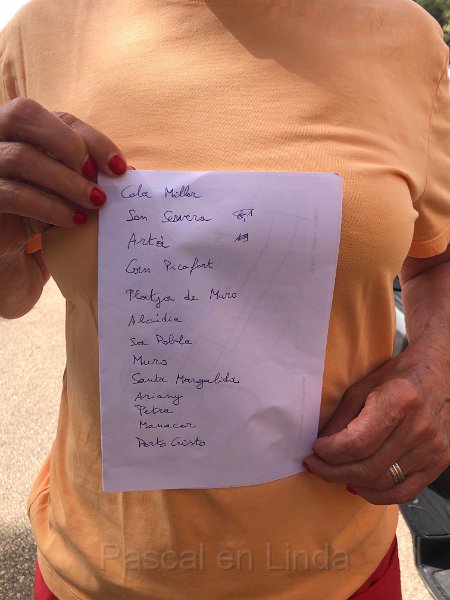 Cala Millor
Son Servera
Artà
Can Picafort
Platja de Muro
Alcúdia
Sa Pobla
Muro
Santa Margalida
Ariany
Petra
Manacor
Porto Cristo
Pascal en Linda